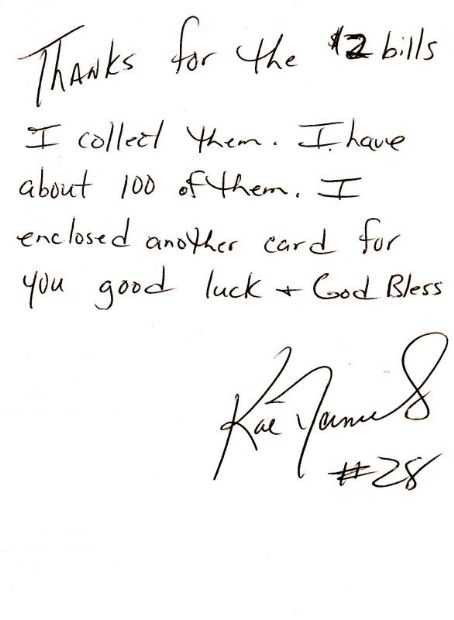 Thanks for the $2 bills
I collect them. I have
about 100 of them. I
enclosed another card for
you good luck + God Bless
#28